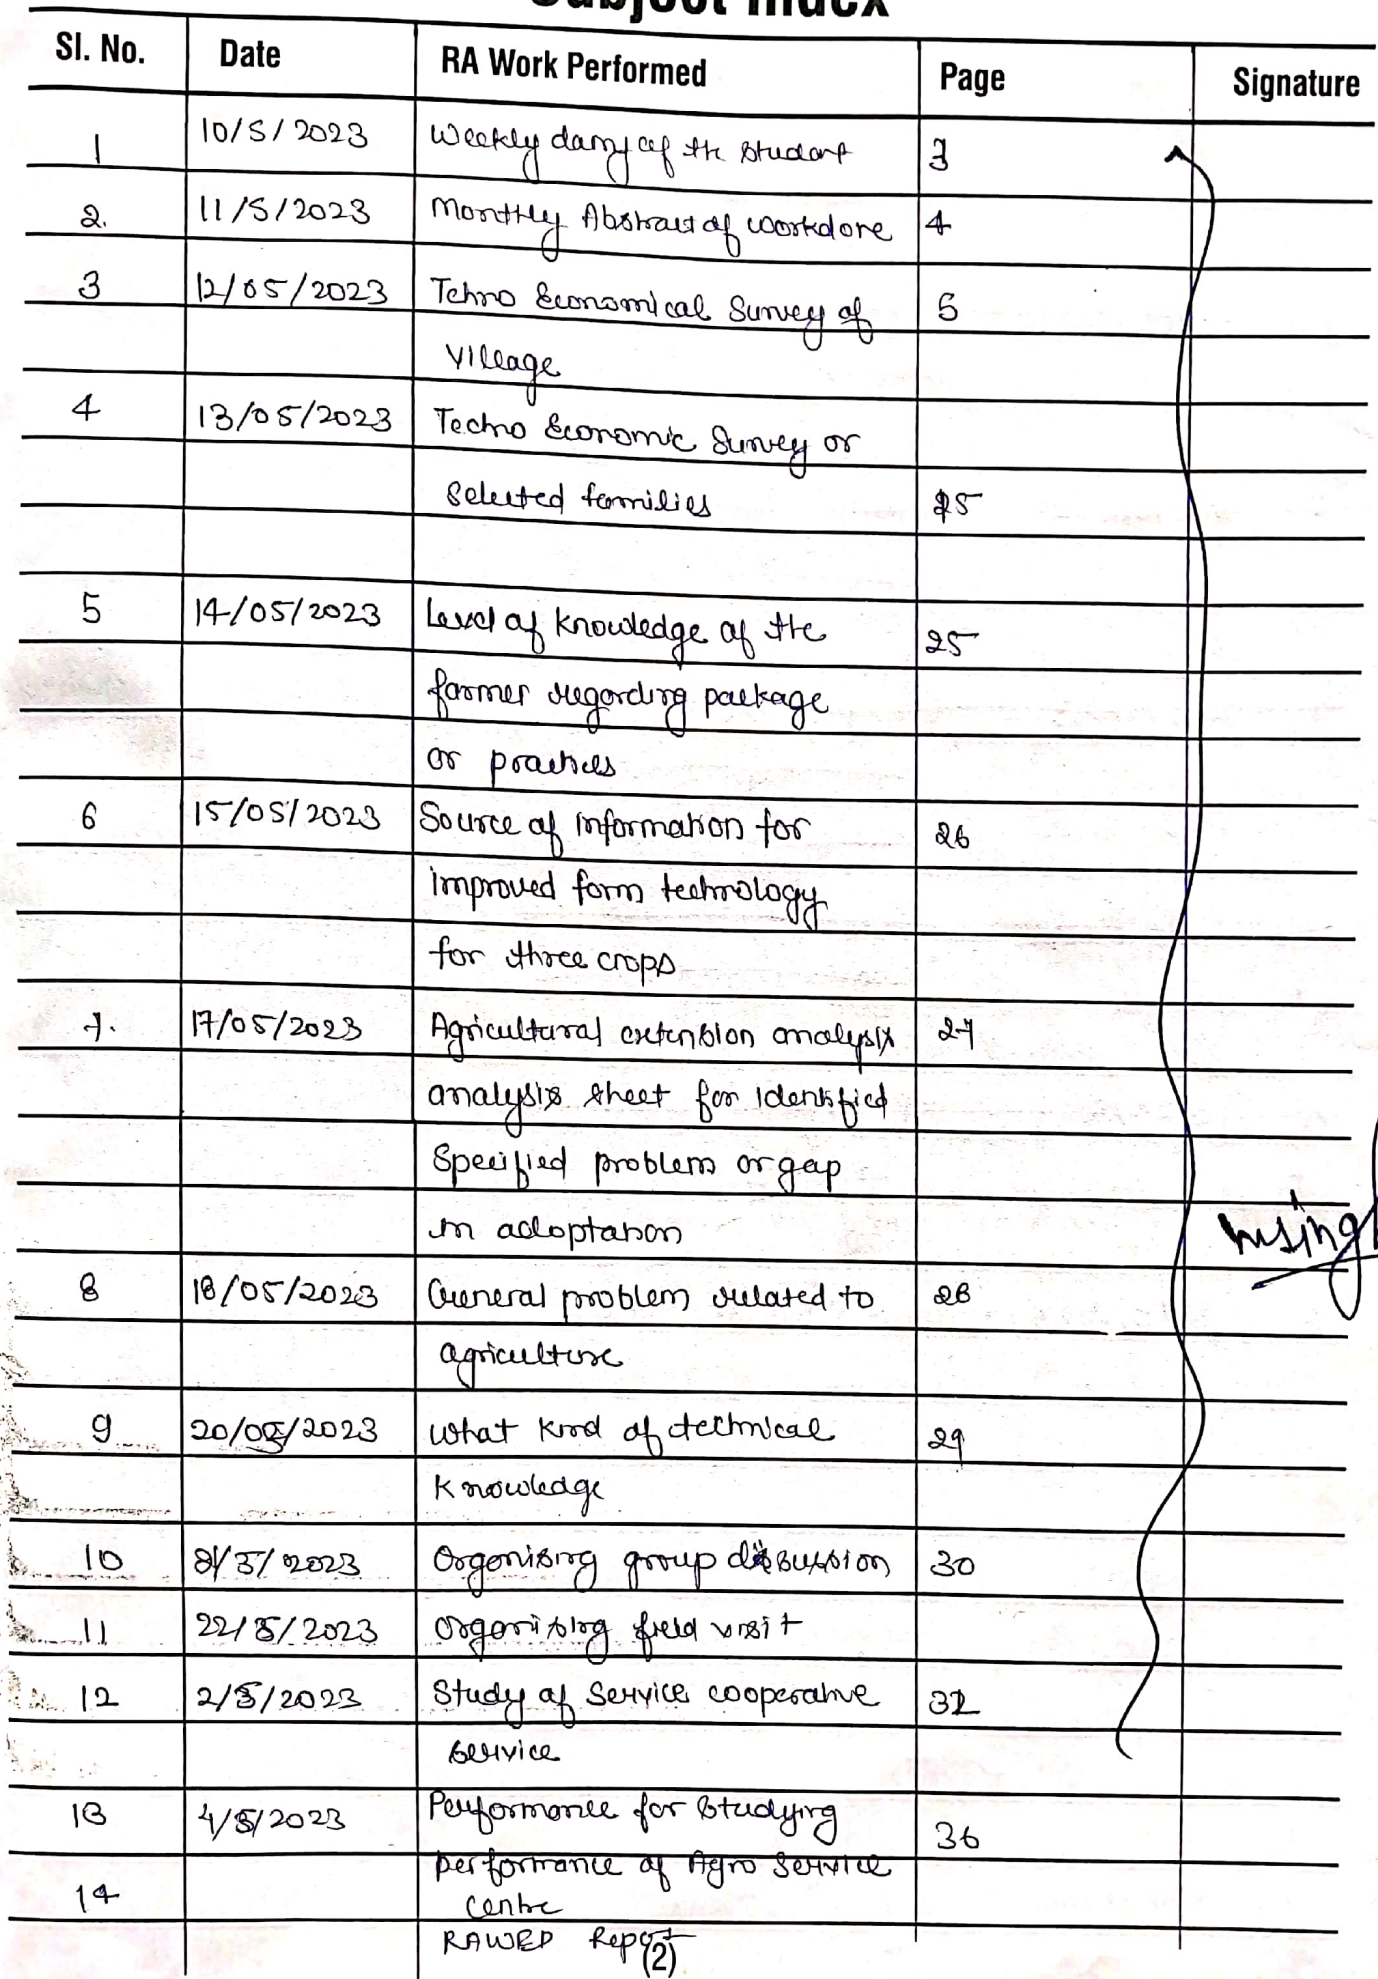 Subject Index
Sl. No. Date RA Work Performed Page Signature
1 10/5/2023 Weekly dary of the student 3
2. 11/5/2023 Monthly Abstract of workdone 4
3 12/05/2023 Tehno Economical Survey of 5
Village
4 13/05/2023 Techno Economic Survey or
Selected families 25
5 14/05/2023 Level of knowledge of the 25
farmer regarding package
or practices
6 15/05/2023 Source of information for 26
improved form technology
for three crops
7. 17/05/2023 Agricultural extension analysis 27
analysis sheet for identified
Specified problem or gap
in adoptation
8 18/05/2023 General problem related to 28
agriculture
9 20/05/2023 What kind of technical 29
Knowledge
10 2/5/2023 Organising group discussion 30
11 22/5/2023 Organising field visit
12 2/5/2023 Study of Service cooperative 32
service
13 4/5/2023 Performance for studying 36
performance of Agro Service
14 centre
RAWEP Report
(2)